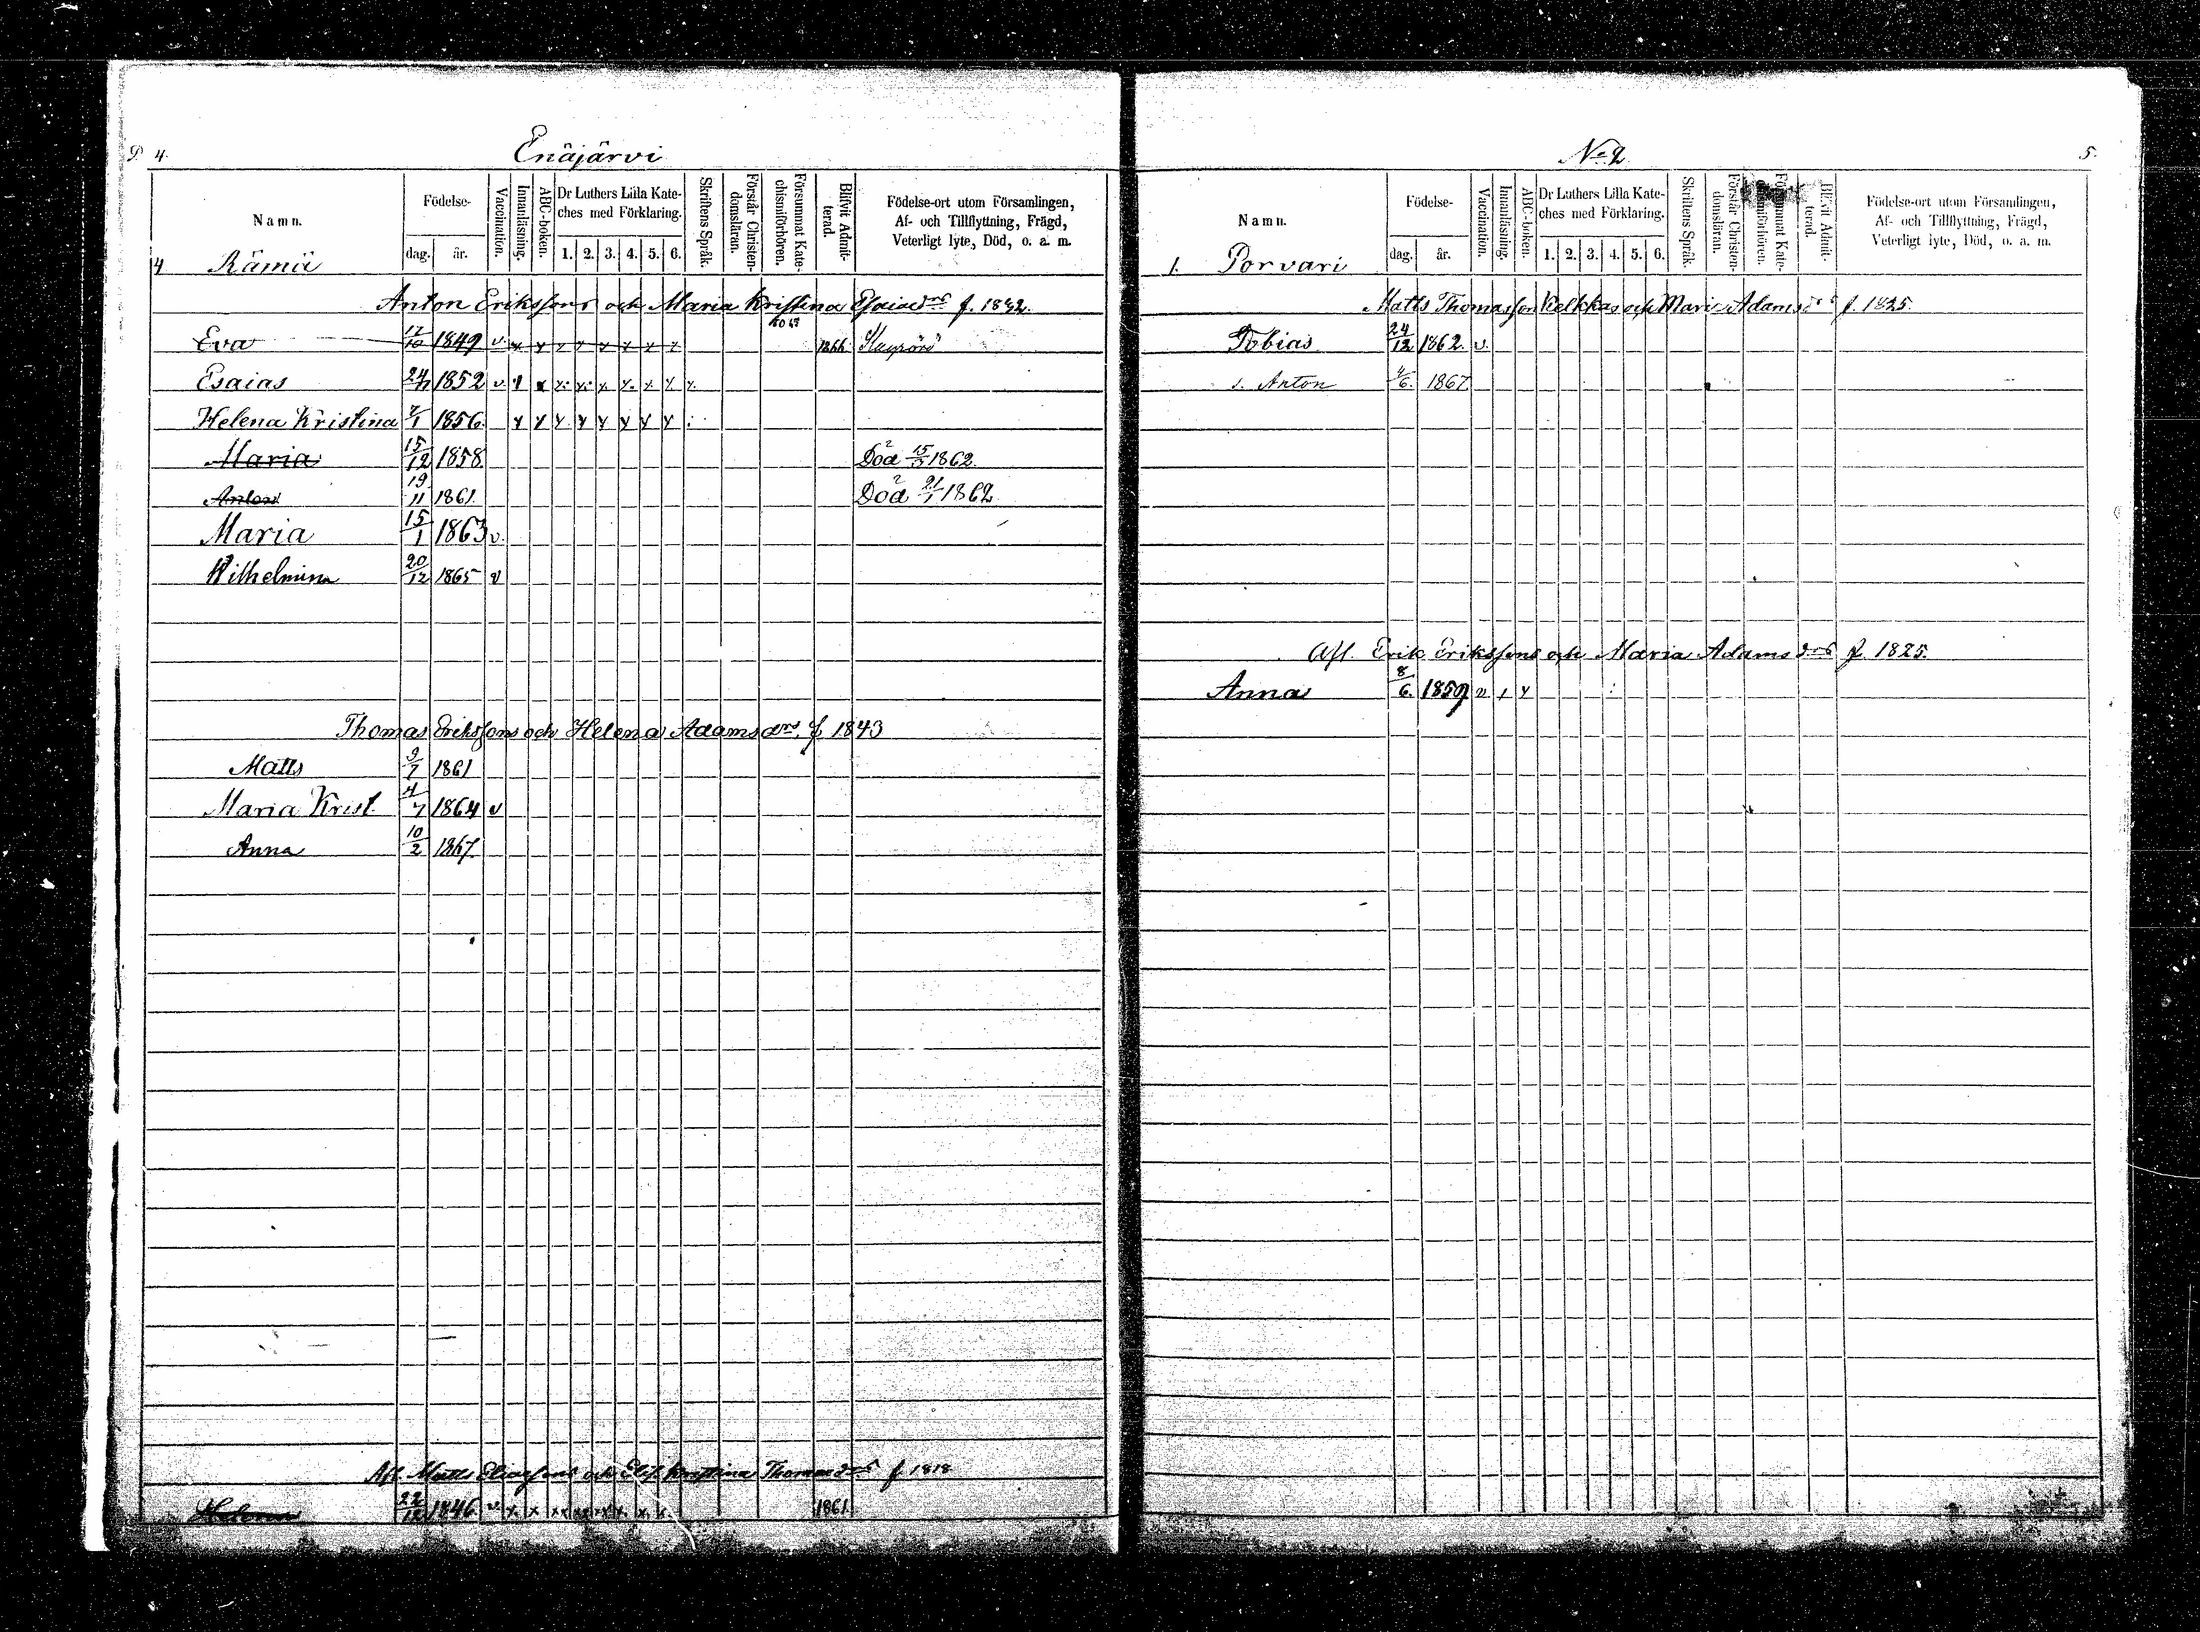 P. 4. Enäjärvi
Namn. Födelse- dag. år. Vaccination. Innanläsning. ABC-boken. Dr Luthers Lilla Kateches med Förklaring. 1. 2. 3. 4. 5. 6. Skriftens Språk. Förstår Christendomsläran. Försummat Katechismiförhören. Blifvit Admitterad. Födelse-ort utom Församlingen, Af- och Tillflyttning, Frägd, Veterligt lyte, Död, o. a. m.
4 Rämii
Anton Erikssons och Maria Kristina Esaiedrs f. 1832.
Eva 12/10 1849 v. x x x x x x x x 1866
Esaias 24/11 1852 v x x x x x x x x x
Helena Kristina 7/1 1856. x x x x x x x x
Maria 15/12 1858. Död 15/3 1862.
Anton 19/11 1861. Död 21/1 1862
Maria 15/1 1863 v.
Wilhelmina 20/12 1865 v
Thomas Erikssons och Helena Adamsdrs. f. 1843
Matts 9/7 1861
Maria Krist. 4/7 1864 v
Anna 10/2 1867.
Afl. Matts Eliassons och Elis. Kristina Thomasdrs f 1818
Helena 22/12 1846 v x. x xx xx xx x. x. x. 1861.
No 2. 5.
Namn. Födelse- dag. år. Vaccination. Innanläsning. ABC-boken. Dr Luthers Lilla Kateches med Förklaring. 1. 2. 3. 4. 5. 6. Skriftens Språk. Förstår Christendomsläran. Försummat Katechismiförhören. Blifvit Admitterad. Födelse-ort utom Församlingen, Af- och Tillflyttning, Frägd, Veterligt lyte, Död, o. a. m.
1. Porvari
Matts Thomasson Kelkkas och Mari Adamsdrs f. 1825.
Tobias 24/12 1862. v.
s. Anton 4/6. 1867
Afl. Erik Erikssons och Maria Adamsdrs f. 1825.
Anna 8/6. 1859 v x x